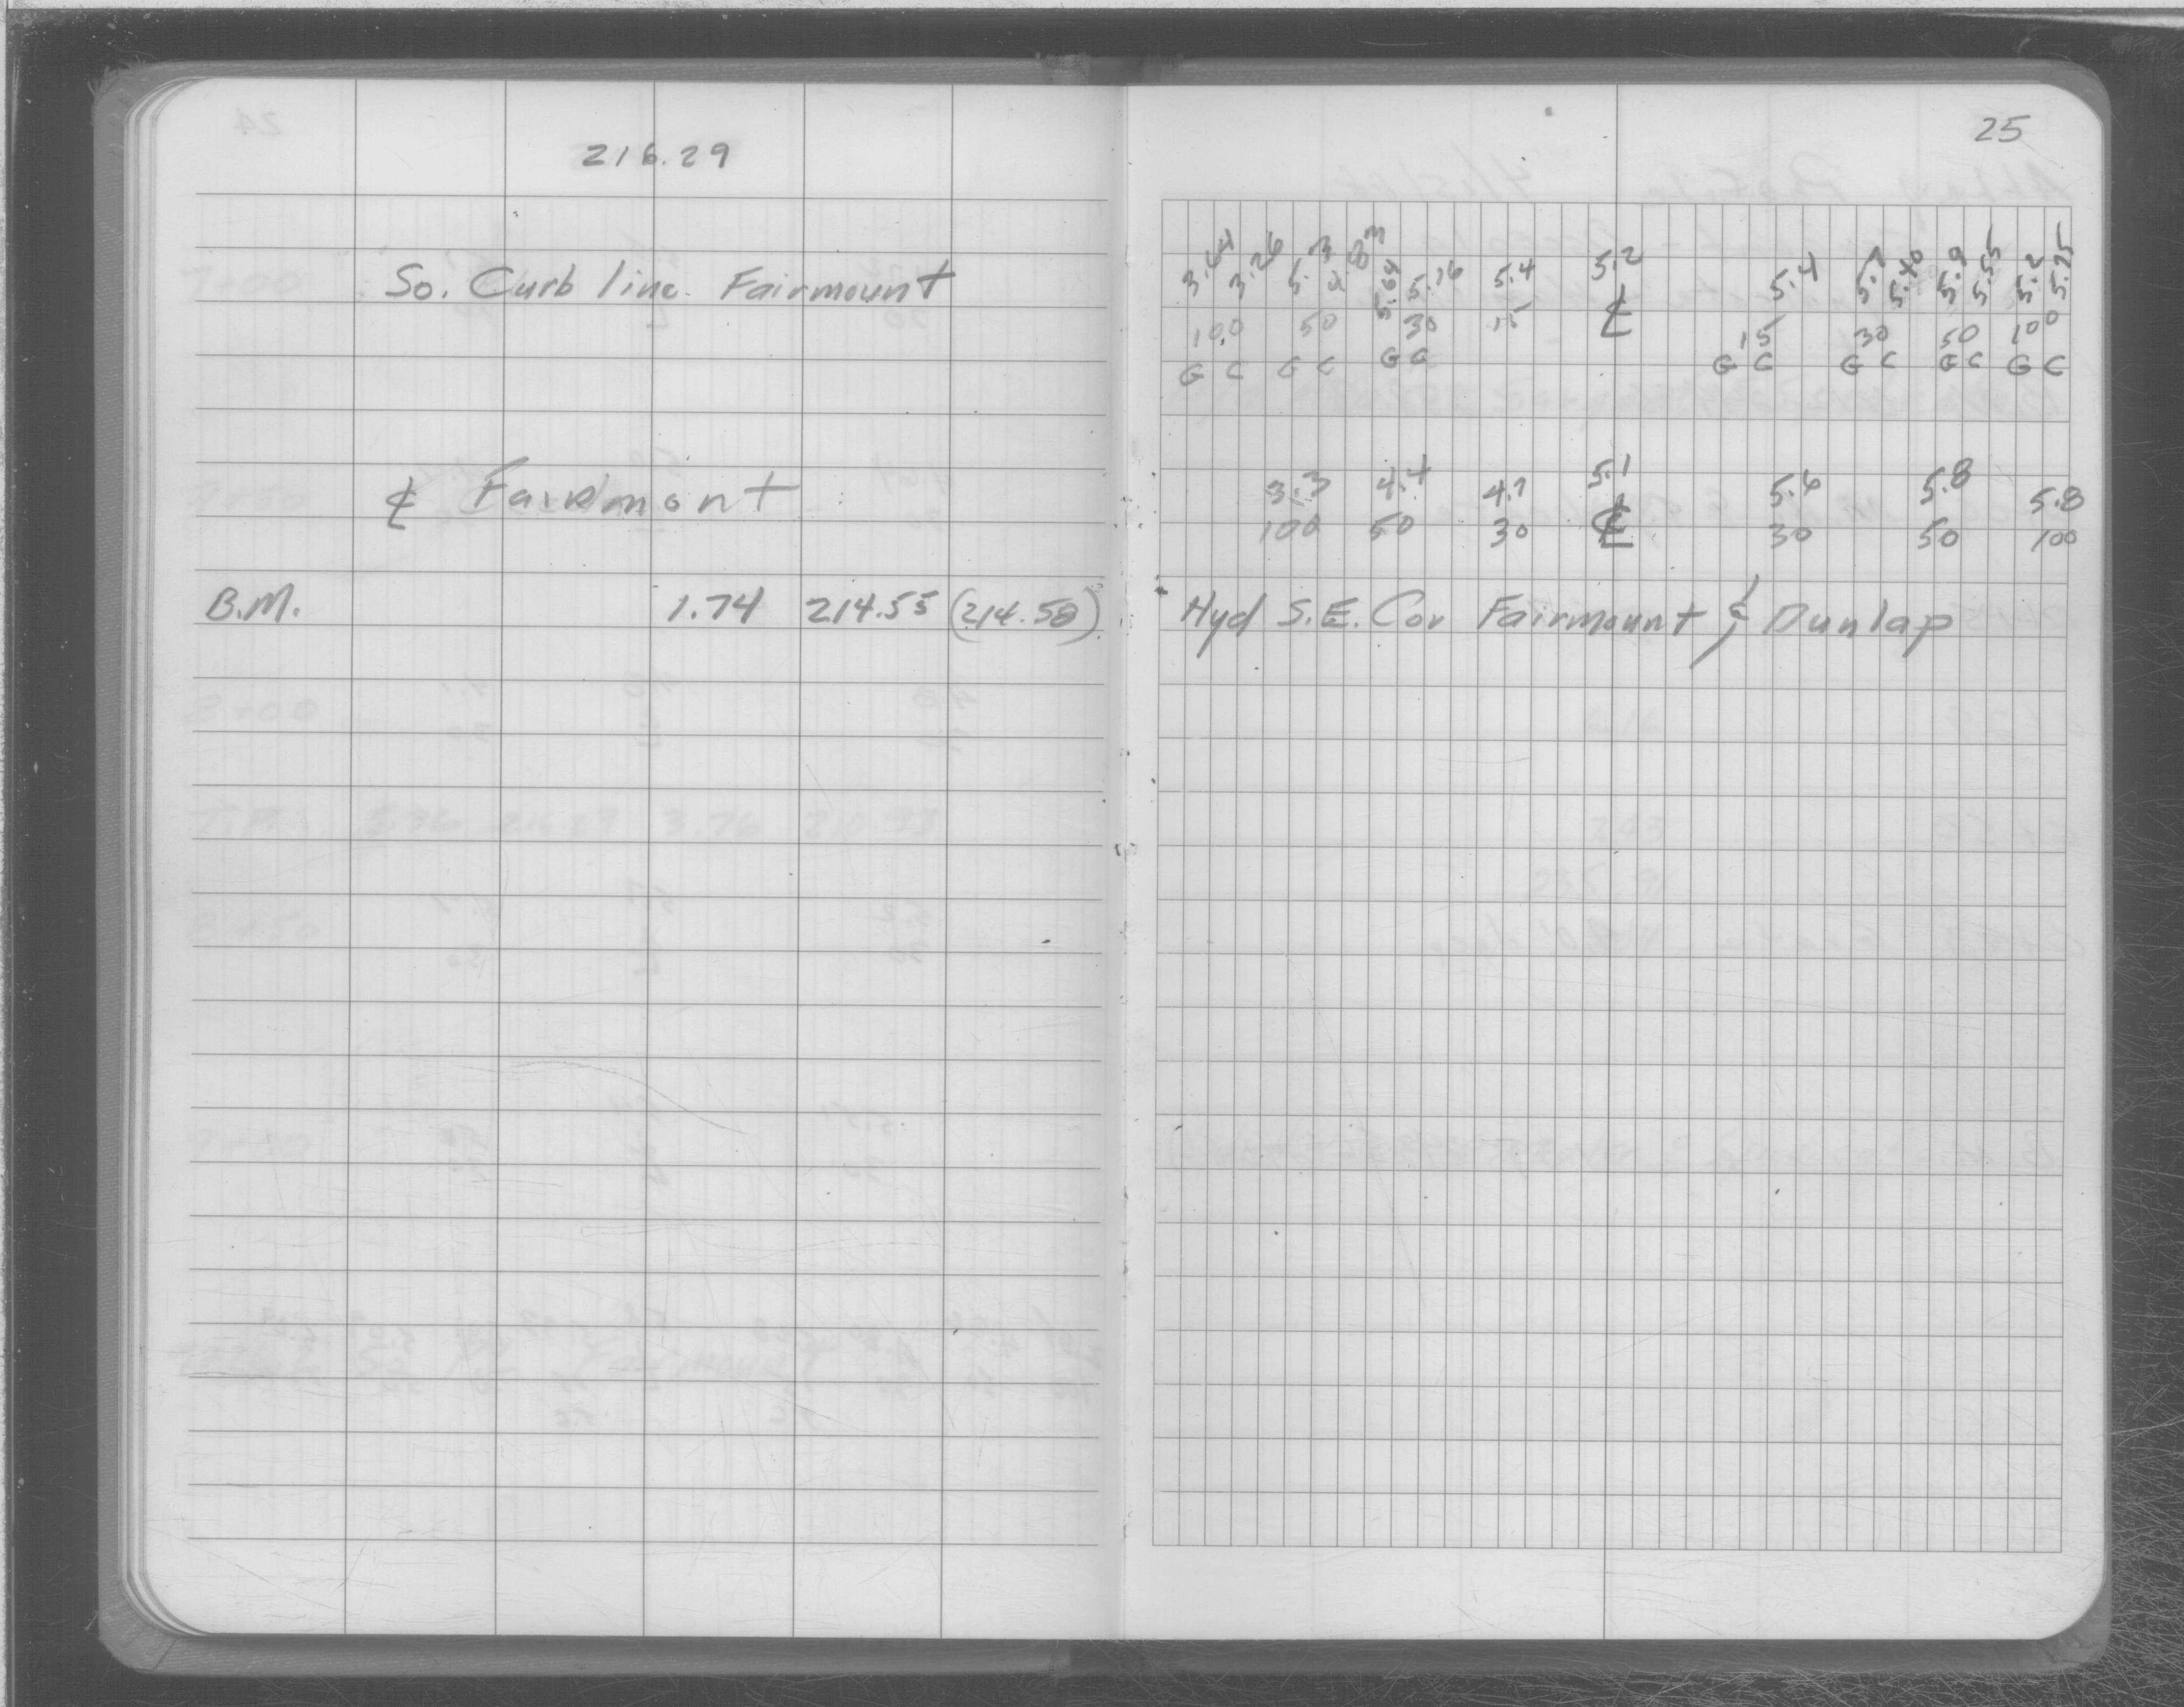 25
216.29
So. Curb line Fairmount
3.44 3.26 5.3 5.64 5.16 5.4 5.2 5.4 5.7 5.40 5.9 5.55 5.2 5.25
100 50 30 15 ℄ 15 30 50 100
G C G C G C G C G C G C G C
℄ Fairmont
3.3 4.4 4.7 5.1 5.6 5.8 5.8
100 50 30 ℄ 30 50 100
B.M. 1.74 214.55 (214.58) Hyd S.E. Cor Fairmount & Dunlap